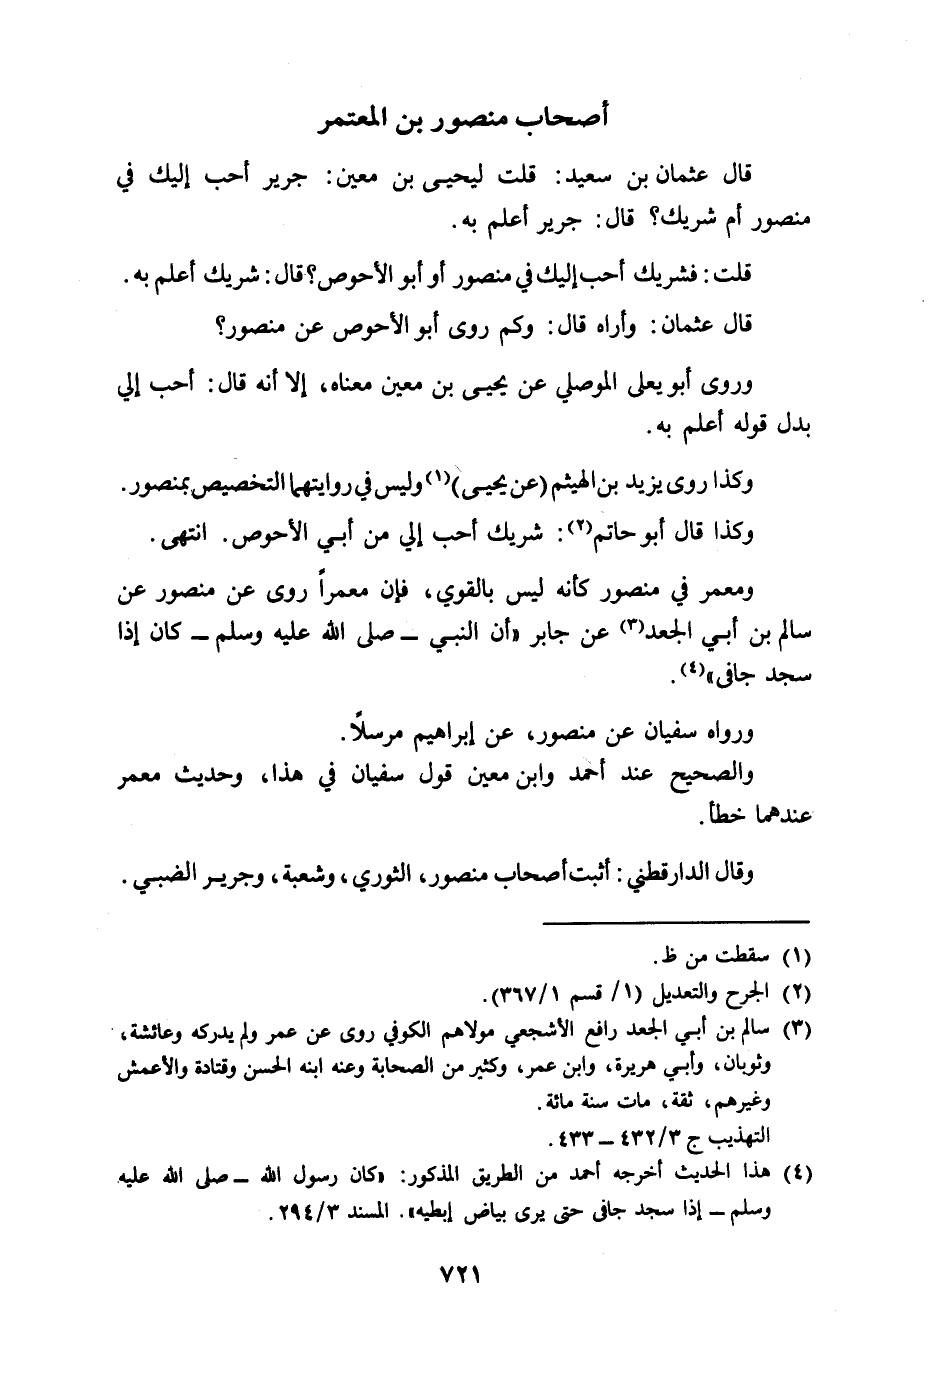 أصحاب منصور بن المعتمر
قال عثمان بن سعيد: قلت ليحيى بن معين: جرير أحب إليك في
منصور أم شريك؟ قال: جرير أعلم به.
قلت: فشريك أحب إليك في منصور أو أبو الأحوص؟ قال: شريك أعلم به.
قال عثمان: وأراه قال: وكم روى أبو الأحوص عن منصور؟
وروى أبو يعلى الموصلي عن يحيى بن معين معناه، إلا أنه قال: أحب إلي
بدل قوله أعلم به.
وكذا روى يزيد بن الهيثم (عن يحيى)(١) وليس في روايتهما التخصيص بمنصور.
وكذا قال أبو حاتم(٢): شريك أحب إلي من أبي الأحوص. انتهى.
ومعمر في منصور كأنه ليس بالقوي، فإن معمراً روى عن منصور عن
سالم بن أبي الجعد(٣) عن جابر «أن النبي ـ صلى الله عليه وسلم ـ كان إذا
سجد جافى»(٤).
ورواه سفيان عن منصور، عن إبراهيم مرسلاً.
والصحيح عند أحمد وابن معين قول سفيان في هذا، وحديث معمر
عندهما خطأ.
وقال الدارقطني: أثبت أصحاب منصور، الثوري، وشعبة، وجرير الضبي.
(١) سقطت من ظ.
(٢) الجرح والتعديل (١/ قسم ٣٦٧/١).
(٣) سالم بن أبي الجعد رافع الأشجعي مولاهم الكوفي روى عن عمر ولم يدركه وعائشة،
وثوبان، وأبي هريرة، وابن عمر، وكثير من الصحابة وعنه ابنه الحسن وقتادة والأعمش
وغيرهم، ثقة، مات سنة مائة.
التهذيب ج ٤٣٢/٣ ـ ٤٣٣.
(٤) هذا الحديث أخرجه أحمد من الطريق المذكور: «كان رسول الله ـ صلى الله عليه
وسلم ـ إذا سجد جافى حتى يرى بياض إبطيه». المسند ٢٩٤/٣.
٧٢١